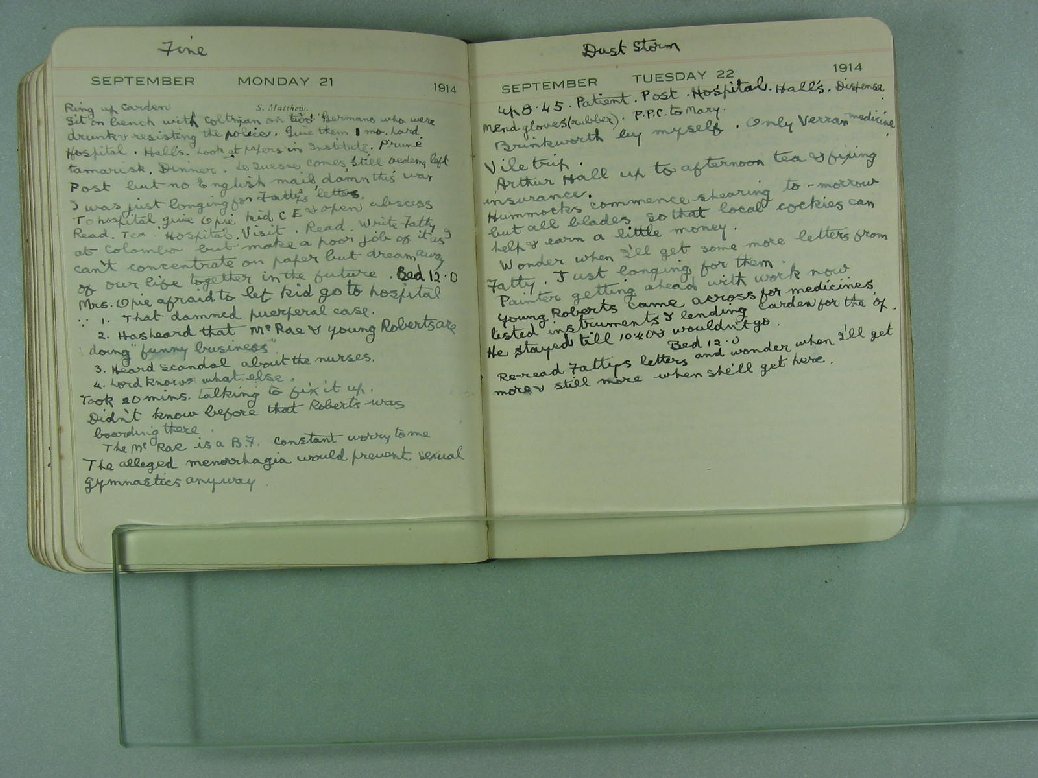 Fine
SEPTEMBER MONDAY 21 1914
S. Matthew.
Ring up Carden
Sit on bench with Coltman on two Germans who were
drunk & resisting the police. Give them 1 mo. hard.
Hospital. Hall's. Look at papers in Institute. Prune
tamarisk. Dinner. Still
Post but no English mail damn this war
I was just longing for Fatty's letters.
To hospital give Opie kid C E & open abscess
Read. Tea. Hospital. Visit. Read. Write Fatty
at Colombo but make a poor job of it as
can't concentrate on paper but dream away
of our life together in the future. Bed 12.0
Mrs. Opie afraid to let kid go to hospital
∵ 1. That damned puerperal case.
2. Has heard that McRae & young Roberts are
doing "funny business"
3. Heard scandal about the nurses.
4. Lord knows what else.
Took 20 mins. talking to fix it up.
Didn't know before that Roberts was
boarding there.
The McRae is a B.F. constant worry to me
The alleged menorrhagia would prevent sexual
gymnastics anyway.
Dust Storm
SEPTEMBER TUESDAY 22 1914
Up 8.45. Patient. Post. Hospital. Hall's. Dispense
medicine
Mend gloves (rubber). P.P.C. to Mary.
Brinkworth by myself. Only Verran
Vile trip.
Arthur Hall up to afternoon tea & fixing
insurance.
Hummocks commence shearing to-morrow
but all blades so that local cockies can
help & earn a little money.
Wonder when I'll get some more letters from
Fatty. Just longing for them.
Painter getting ahead with work now.
Young Roberts came across for medicines,
listed instruments & lending Carden for the op.
He stayed till 10. & wouldn't go.
Bed 12.0
Re-read Fatty's letters and wonder when I'll get
more & still more when she'll get here.